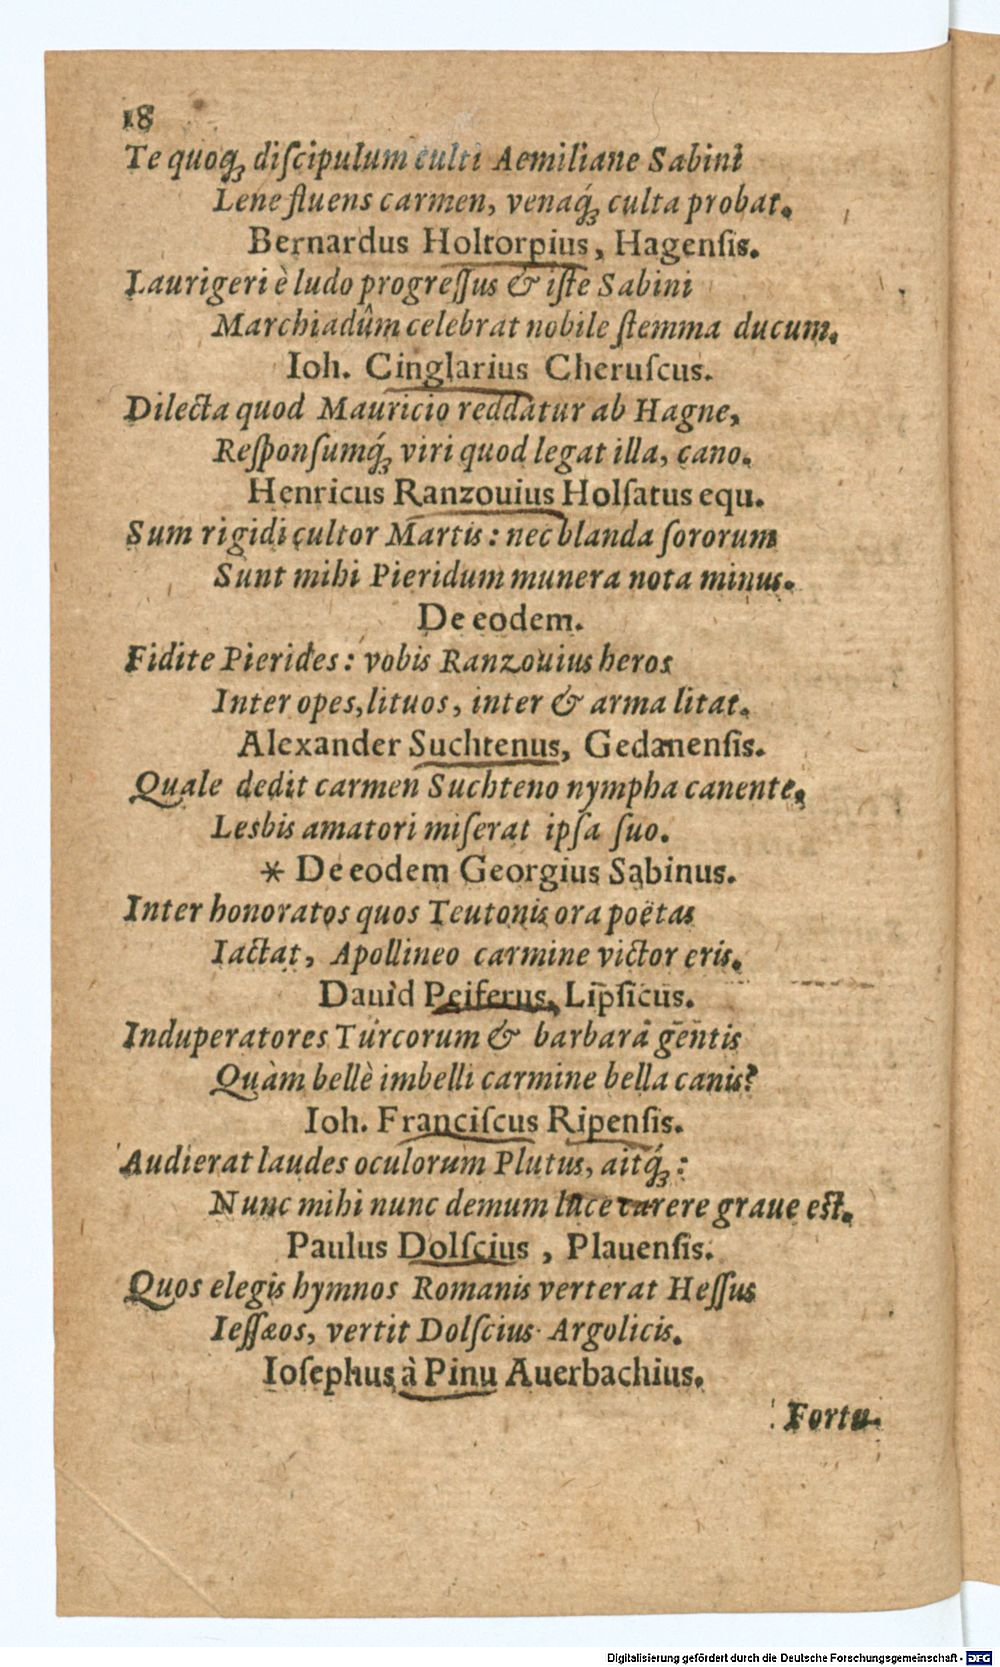 18
Te quoq́; diſcipulum culti Aemiliane Sabini
Lene fluens carmen, venaq́; culta probat.
Bernardus Holtorpius, Hagenſis.
Laurigeri è ludo progreſſus & iſte Sabini
Marchiadûm celebrat nobile ſtemma ducum.
Ioh. Cinglarius Cheruſcus.
Dilecta quod Mauricio reddatur ab Hagne,
Reſponſumq́; viri quod legat illa, cano.
Henricus Ranzouius Holſatus equ.
Sum rigidi cultor Martis: nec blanda ſororum
Sunt mihi Pieridum munera nota minus.
De eodem.
Fidite Pierides: vobis Ranzouius heros
Inter opes, lituos, inter & arma litat.
Alexander Suchtenus, Gedanenſis.
Quale dedit carmen Suchteno nympha canente,
Lesbis amatori miſerat ipſa ſuo.
* De eodem Georgius Sabinus.
Inter honoratos quos Teutonis ora poëtas
Iactat, Apollineo carmine victor eris.
Dauid Peiferus, Lipſicus.
Induperatores Turcorum & barbara gentis
Quàm bellè imbelli carmine bella canis?
Ioh. Franciſcus Ripenſis.
Audierat laudes oculorum Plutus, aitq́;:
Nunc mihi nunc demum luce carere graue eſt.
Paulus Dolſcius, Plauenſis.
Quos elegis hymnos Romanis verterat Heſſus
Ieſſæos, vertit Dolſcius Argolicis.
Ioſephus à Pinu Auerbachius.
Fortu-
Digitalisierung gefördert durch die Deutsche Forschungsgemeinschaft - DFG